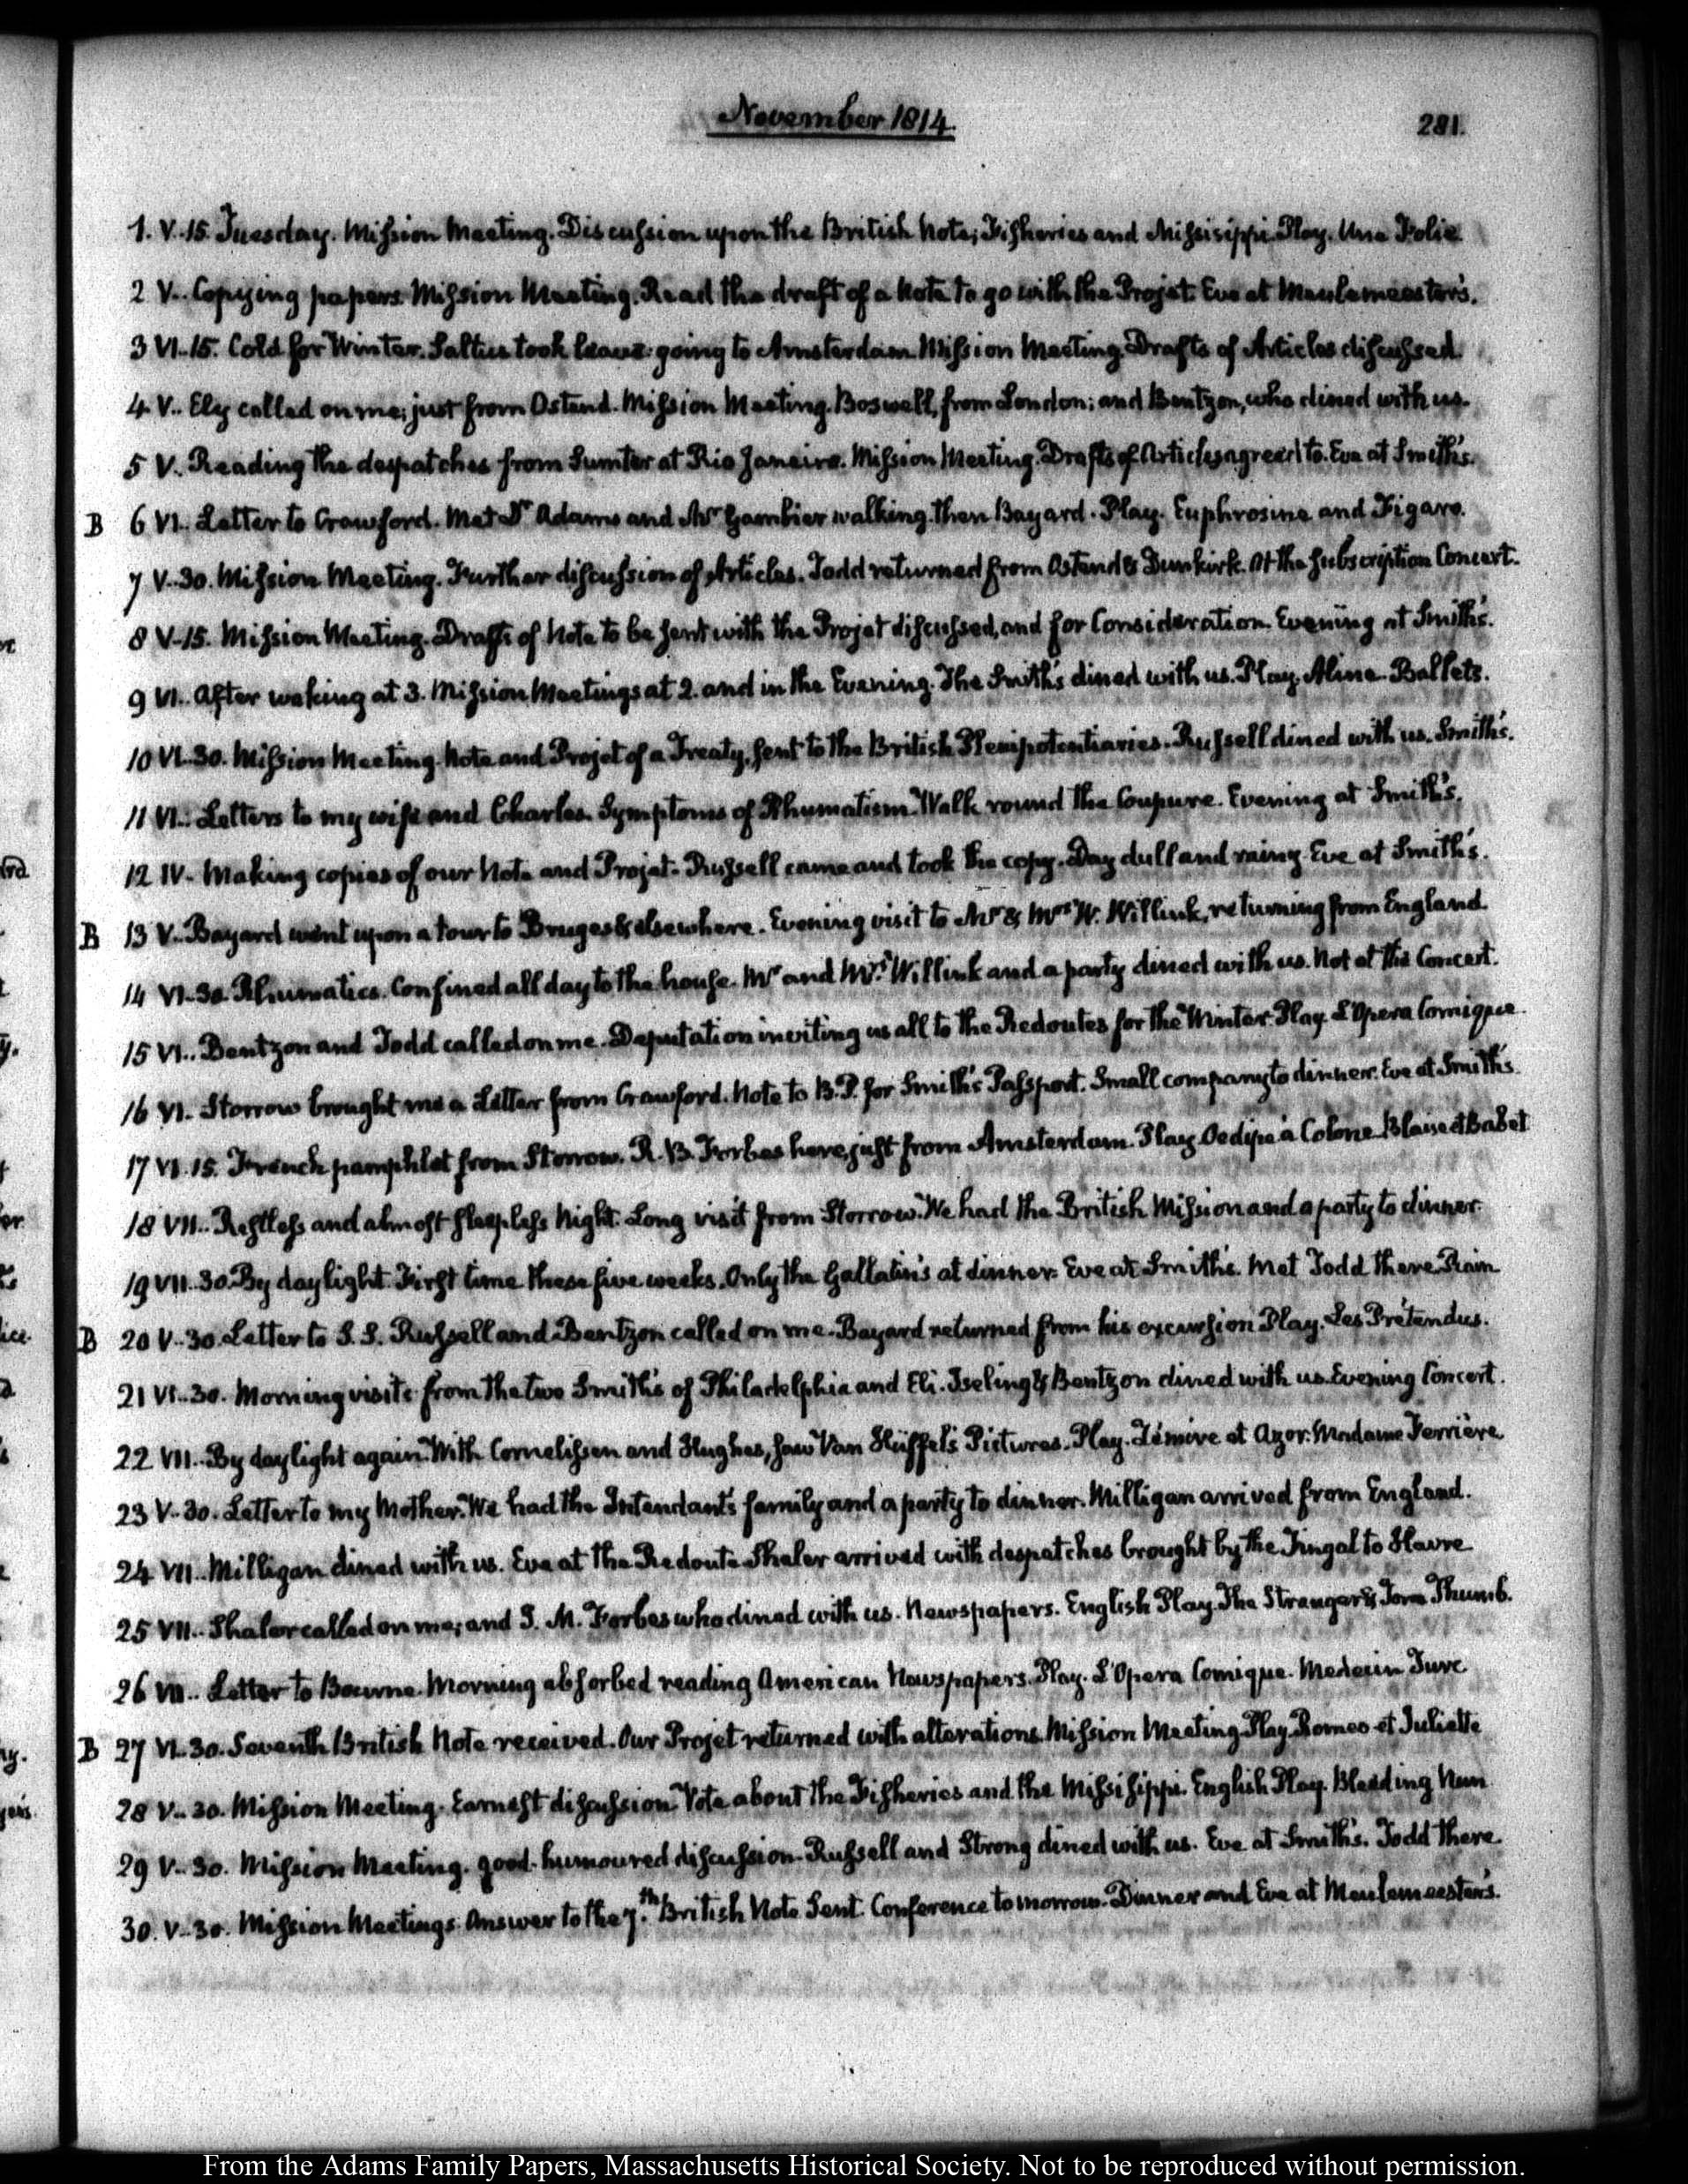 November 1814.
281.
1. V.15. Tuesday. Mission Meeting. Discussion upon the British Note; Fisheries and Missisippi. Play. Une Folie
2 V.. Copying papers. Mission Meeting. Read the draft of a Note to go with the Projet. Eve at Meulemeester's.
3 VI.15. Cold for Winter. Saltus took leave: going to Amsterdam. Mission Meeting. Drafts of Articles discussed.
4 V.. Ely called on me; just from Ostend. Mission Meeting. Boswell, from London; and Bentzon, who dined with us.
5 V. Reading the despatches from Sumter at Rio Janeiro. Mission Meeting. Drafts of Articles agreed to. Eve at Smith's.
B 6 VI.. Letter to Crawford. Met Dr Adams and Mr Gambier walking. then Bayard. Play. Euphrosine and Figaro.
7 V.30. Mission Meeting. Further discussion of Articles. Todd returned from Ostend & Dunkirk. At the Subscription Concert.
8 V.15. Mission Meeting. Drafts of Note to be sent with the Projet discussed, and for Consideration. Evening at Smith's.
9 VI.. After waking at 3. Mission Meetings at 2. and in the Evening. The Smith's dined with us. Play. Aline. Ballets.
10 VI.30. Mission Meeting. Note and Projet of a Treaty, sent to the British Plenipotentiaries. Russell dined with us. Smith's.
11 VI.. Letters to my wife and Charles. Symptoms of Rhumatism. Walk round the Coupure. Evening at Smith's.
12 IV. Making copies of our Note and Projet. Russell came and took the copy. Day dull and rainy. Eve at Smith's.
B 13 V.. Bayard went upon a tour to Bruges & elsewhere. Evening visit to Mr & Mrs W. Willink, returning from England.
14 VI.30. Rhumatics. Confined all day to the house. Mr and Mrs Willink and a party dined with us. Not at the Concert.
15 VI.. Bentzon and Todd called on me. Deputation inviting us all to the Redoutes for the Winter. Play. L'Opera Comique.
16 VI. Storrow brought me a Letter from Crawford. Note to B.P. for Smith's Passport. Small company to dinner. Eve at Smith's.
17 VI.15. French pamphlet from Storrow. R. B. Forbes here, just from Amsterdam. Play. Oedipe à Colone. Blaise et Babet
18 VII.. Restless and almost sleepless Night. Long visit from Storrow. We had the British Mission and a party to dinner.
19 VII.30. By daylight. First time these five weeks. Only the Gallatin's at dinner. Eve at Smith's. Met Todd there. Rain
B 20 V.30. Letter to S.S. Russell and Bentzon called on me. Bayard returned from his excursion. Play. Les Prétendus.
21 VI.30. Morning visits from the two Smith's of Philadelphia and Eli. Iseling & Bentzon dined with us. Evening Concert.
22 VII.. By daylight again. With Cornelissen and Hughes, saw Van Hüffel's Pictures. Play. Zémire et Azor. Madame Ferrière.
23 V.30. Letter to my Mother. We had the Intendant's family and a party to dinner. Milligan arrived from England.
24 VII.. Milligan dined with us. Eve at the Redoute. Shaler arrived with despatches brought by the Fingal to Havre
25 VII.. Shaler called on me; and J. M. Forbes who dined with us. Newspapers. English Play. The Stranger & Tom Thumb.
26 VII.. Letter to Bourne. Morning absorbed reading American Newspapers. Play. L'Opera Comique. Medecin Turc
B 27 VI.30. Seventh British Note received. Our Projet returned with alterations. Mission Meeting. Play. Romeo et Juliette
28 V..30. Mission Meeting. Earnest discussion. Vote about the Fisheries and the Missisippi. English Play. Bleeding Nun
29 V..30. Mission Meeting. good-humoured discussion. Russell and Strong dined with us. Eve at Smith's. Todd there.
30. V..30. Mission Meetings. Answer to the 7.th British Note sent. Conference tomorrow. Dinner and Eve at Meulemeester's.
From the Adams Family Papers, Massachusetts Historical Society. Not to be reproduced without permission.